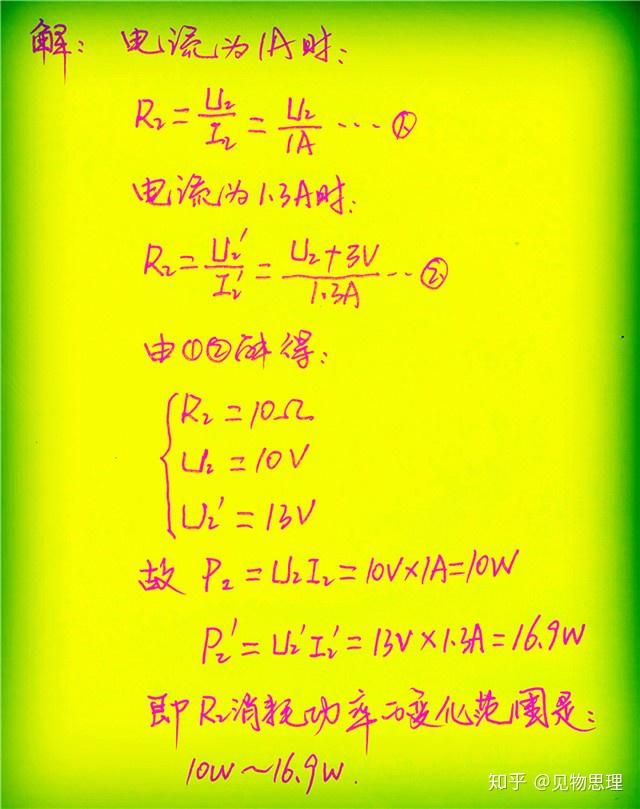 解：电流为1A时：
R₂=U₂/I₂=U₂/1A ……①
电流为1.3A时：
R₂=U₂'/I₂'=(U₂+3V)/1.3A …②
由①②解得：
R₂=10Ω
U₂=10V
U₂'=13V
故 P₂=U₂I₂=10V×1A=10W
P₂'=U₂'I₂'=13V×1.3A=16.9W
即R₂消耗功率的变化范围是：
10W～16.9W.
知乎 @见物思理